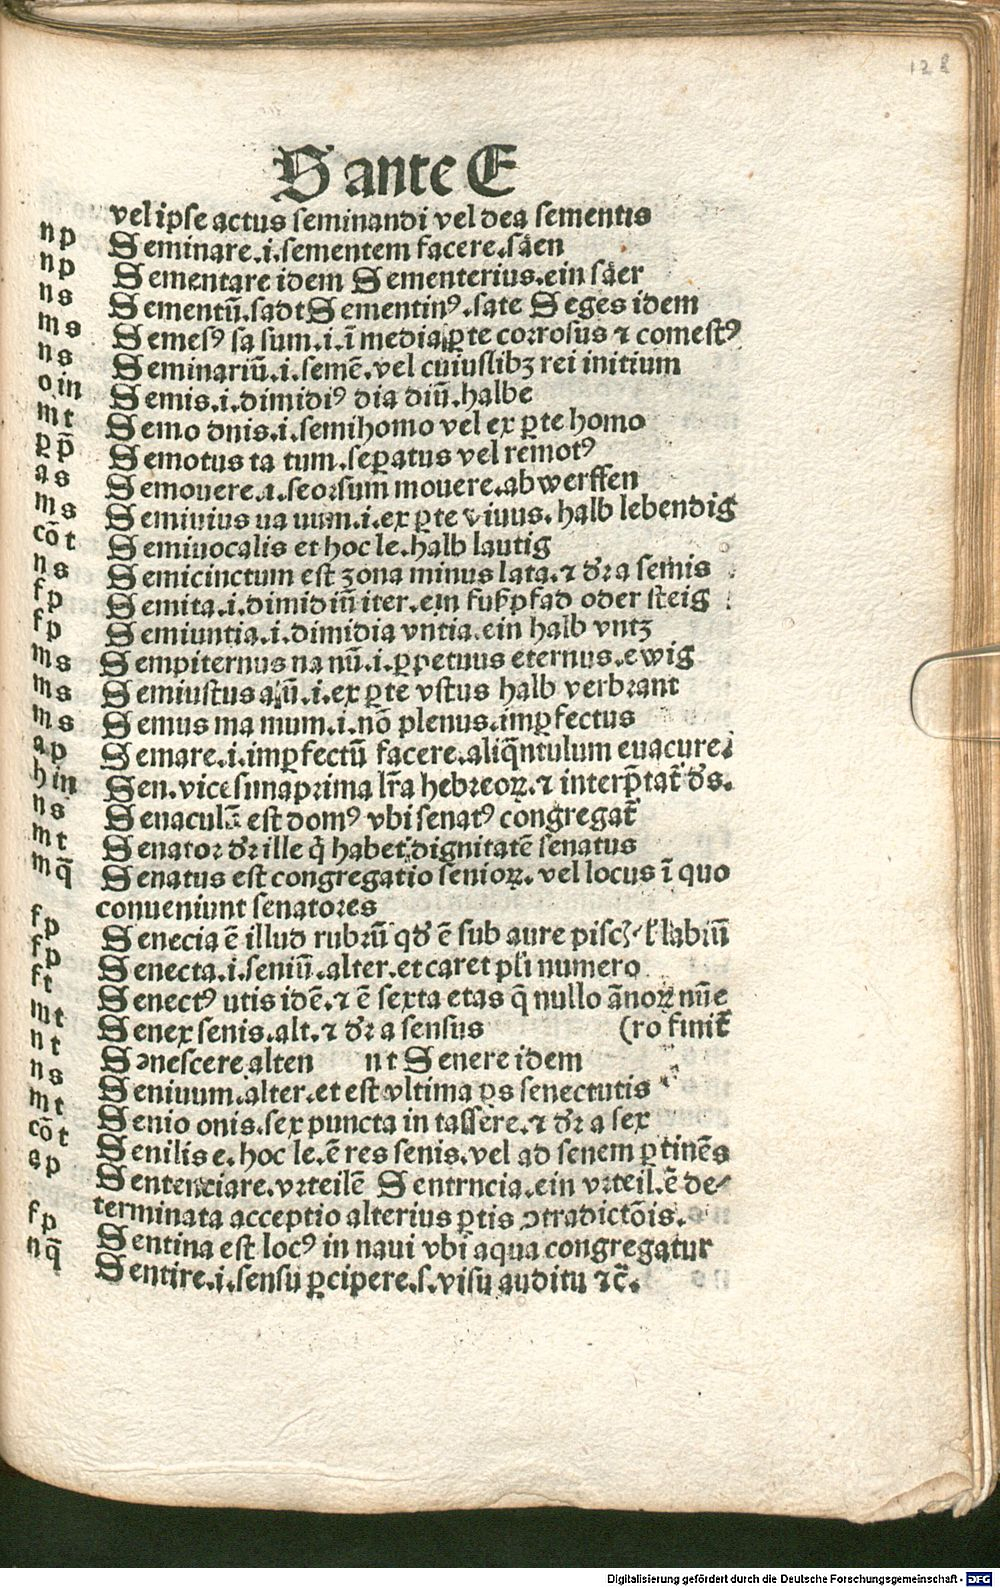 128
S ante E
vel ipse actus seminandi vel dea sementis
np Seminare.i.sementem facere.säen
np Sementare idem Sementerius.ein säer
ns Sementū.sadt Sementinꝰ.sate Seges idem
ms Semesꝰ sa sum.i.ī media ꝑte corrosus ⁊ comestꝰ
ns Seminariū.i.semē.vel cuiuslibꝫ rei initium
oin Semis.i.dimidiꝰ dia diū.halbe
mt Semo onis.i.semihomo vel ex ꝑte homo
ꝑp̄ Semotus ta tum.seꝑatus vel remotꝰ
as Semouere.i.seorsum mouere.abwerffen
ms Semiuius ua uum.i.ex ꝑte viuus.halb lebendig
cōt Semiuocalis et hoc le.halb lautig
ns Semicinctum est zona minus lata.⁊ dr̄ a semis
fp Semita.i.dimidiū iter.ein fußpfad oder steig
fp Semiuntia.i.dimidia vntia.ein halb vntz
ms Sempiternus na nū.i.ꝑpetuus eternus.ewig
ms Semiustus a ū.i.ex ꝑte vstus halb verbrant
ms Semus ma mum.i.nō plenus.imꝑfectus
ap Semare.i.imꝑfectū facere.aliq̄ntulum euacure
hin Sen.vicesunaprima lr̄a hebreoꝝ.⁊ interp̄tat̄ dēs.
ns Senaculā est domꝰ vbi senatꝰ congregat̄
mt Senator dr̄ ille q̄ habet dignitatē senatus
mq̄ Senatus est congregatio senioꝝ.vel locus ī quo
conueniunt senatores
fp Senecia ē illud rubrū qd̄ ē sub aure pisc labiū
fp Senecta.i.seniū.alter.et caret pl̄i numero
ft Senectꝰ utis idē.⁊ ē sexta etas q̄ nullo ānoꝝ nūe
mt Senex senis.alt.⁊ dr̄ a sensus (ro finit̄
nt Senescere alten nt Senere idem
ns Seniuum.alter.et est vltima ꝑs senectutis
mt Senio onis.sex puncta in tassere.⁊ dr̄ a sex
cōt Senilis e.hoc le.ē res senis.vel ad senem ꝑtinēs
ap Sentenciare.vrteilē Sentrncia.ein vrteil.ē de⸗
terminata acceptio alterius ꝑtis ↄtradictōis.
fp Sentina est locꝰ in naui vbi aqua congregatur
nq̄ Sentire.i.sensu ꝑcipere.s.visu auditu ⁊c̄.
Digitalisierung gefördert durch die Deutsche Forschungsgemeinschaft - DFG